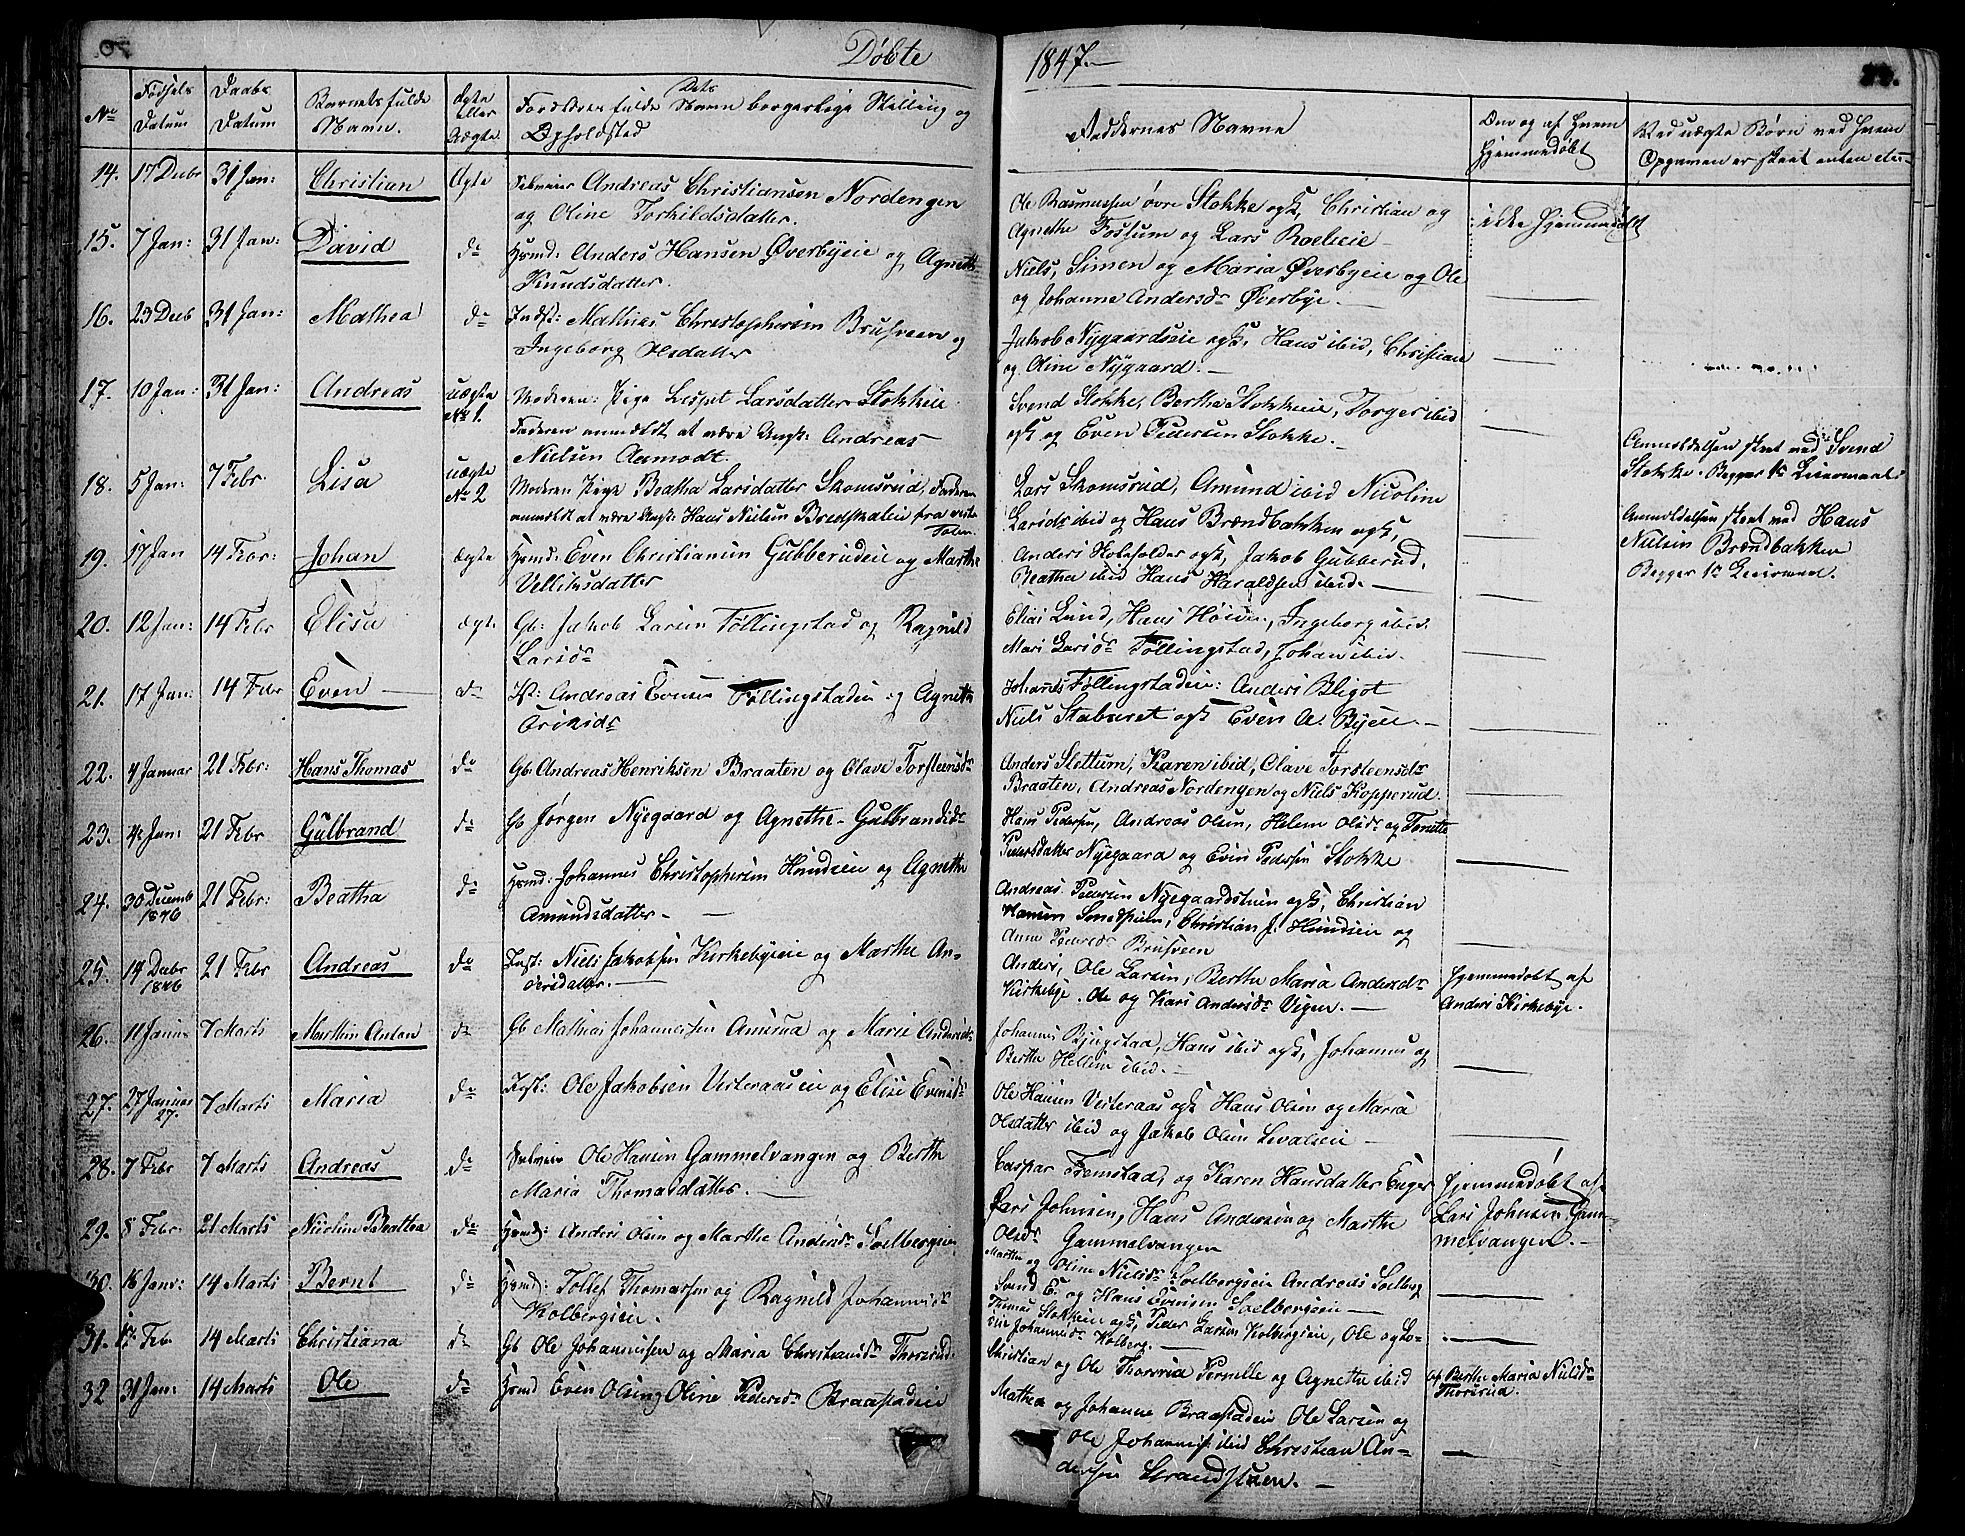 Døbte
1847.
No
Fødsels Datum
Daabs Datum
Barnets fulde Navn.
Ægte eller Uægte
Forældres fulde Navn borgerlige Stilling og Opholdsted
Faddernes Navne
Om og af Hvem Hjemmedøbt
Ved uægte Børn ved Hvem Opgaven er skeet
14. 17 Decbr 31 Jan: Christian Ægte Selveier Andreas Christiansen Nordengen
og Oline Torkildsdatter.
Ole Rasmussen øvre Stokke ogs, Christian og
Agnethe Fossum og Lars Roeleie
ikke Hjemmedøbt
15. 7 Jan: 31 Jan: David do Hmd: Anders Hansen Øverbyeie og Agneth
Knudsdatter.
Niels, Simen og Maria Øverbyeie og Ole
og Johanne Andersdr Øverbye.
16. 23 Decb 31 Jan: Mathea do Indst: Mathias Christophersen Brusveen og
Ingeborg Olsdatter
Jakob Nygaardseie ogs, Hans ibid, Christian
og Oline Nygaard.
17. 10 Jan: 31 Jan: Andreas uægte No 1. Moderen: Pige Lispet Larsdatter Stokkeie
Faderen anmeldt at være Ungk: Andreas
Nielsen Aamodt.
Svend Stokke, Bertha Stokkeie, Torger ibid
ogs og Even Pedersen Stokke.
Anmeldelsen skeet ved Svend
Stokke. Begges 1te Leiermaal.
18. 5 Jan: 7 Febr. Lisa uægte No 2 Moderen Pige Beatha Larsdatter Skomsrud, Faderen
anmeldt at være Ungk: Hans Nielsen Bredskaleie fra
Lars Skomsrud, Amund ibid Nicoline
Larsdr ibid og Hans Brændbakken ogs,
Anmeldelsen skeet ved Hans
Nielsen Brændbakken
Begges 1te Leiermaal.
19. 17 Jan 14 Febr: Johan ægte Hmd: Even Christiansen Gubberudeie og Marthe
Velliksdatter
Anders ogs, Jakob Gubberud,
Beatha ibid Hans Haraldsen ibid.
20. 12 Jan: 14 Febr Elisa ægte Gb: Jakob Larsen Føllingstad og Ragnild
Larsdr
Elias Lund, Hans Høien, Ingeborg ibid
Mari Larsdr Føllingstad, Johan ibid.
21. 17 Jan: 14 Febr Even do Ist: Andreas Evensen Føllingstadeie og Agnethe
Johannes Føllingstadeie: Anders Bligot
Niels Staburet ogs Even A. Byeie.
22. 4 Januar 21 Febr: Hans Thomas do Gb: Andreas Henriksen Braaten og Olave Torsteensdr
Anders Slettum, Karen ibid, Olave Torsteensdr
Braaten, Andreas Nordengen og Niels Kopperud.
23. 4 Jan: 21 Febr Gulbrand do Gb Jørgen Nyegaard og Agnethe Gulbrandsdr
Hans Pedersen, Andreas Olsen, Helene Olsdr og Tonette
Pedersdatter Nyegaard og Even Pedersen Stokke
24. 30 Decemb 1846 21 Febr: Beatha do Hmd: Johannes Christophersen Hundseie og Agnethe
Amundsdatter
Andreas Pedersen Nyegaardstuen ogs, Christian
Hansen Smedstuen, Christian J. Hundseie og
Anne Pedersdr Brusveen
25. 14 Decbr 1846 21 Febr Andreas do Inst: Niels Jakobsen Kirkebyeie og Marthe An-
dersdatter.
Anders, Ole Larsen, Berthe Maria Andersdr
Kirkebye. Ole og Kari Andersdr Vigen.
Hjemmedøbt af
Anders Kirkebye.
26. 11 Januar 7 Marts Marthin Anton do Gb Mathias Johannessen Amerud og Marie Andersdr
Johannes Bjugstad, Hans ibid ogs, Johannes og
Berthe Hellem ibid.
27. 27 Januar 27. 7 Marts Maria do Inst: Ole Jakobsen Vesteraaseie og Elise Evensdr
Ole Hansen Vesteraas ogs Hans Olsen og Maria
Olsdatter ibid og Jakob Olsen
28. 7 Febr 7 Marts Andreas do Selveier Ole Hansen Gammelvangen og Berthe
Maria Thomasdatter.
Caspar Fremstad, og Karen Hansdatter Enger
Lars Johnsen, Hans Andersen og Marthe
Olsdr Gammelvangen
Hjemmedøbt af
Lars Johnsen Gam-
melvangen.
29. 8 Febr. 21 Marts Nicoline Beathea do Hmd: Anders Olsen og Marthe Andersdr Soelbergeie
Marthe og Oline Nielsdr Soelbergseie Andreas Soelberg
Svend E. og Hans Evensen Soelbergseie
30. 16 Janr: 14 Marts Bernt do Hmd: Tollef Thomassen og Ragnild Johannesdr
Kolbergseie.
Thomas Stokkeie ogs, Peder Larsen Kolbergseie, Ole og Lo-
vise Johannesdr Kolberg.
31. Feb 14 Marts Christiana do Gb Ole Johannesen og Maria Christiansdr Thorsrud
Christian og Ole Thorsrud Pernille og Agnethe ibid
af Berthe Maria Nielsdr
Thorsrud.
32 31 Jan: 14 Marts Ole do Hmd Even Olsen og Oline Pedersdr Braastadeie
Mathea og Johanne Braastadeie Ole Larsen og
Ole Johannes. ibid Christian An-
dersen Strandstuen.